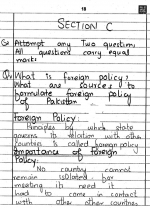 18
SECTION C
Qo Attempt any Two question,
All questions carry equal
marks
Q. What is foreign policy?
What are sources to
formulate foreign policy
of Pakistan.
Foreign Policy:
Priniples by which state
governs its relation with other
countries is called foreign policy
Importance of Foreign
Policy:
No country cannot
remain isolated her
meeting it need it
had to come in contact
with other other countries